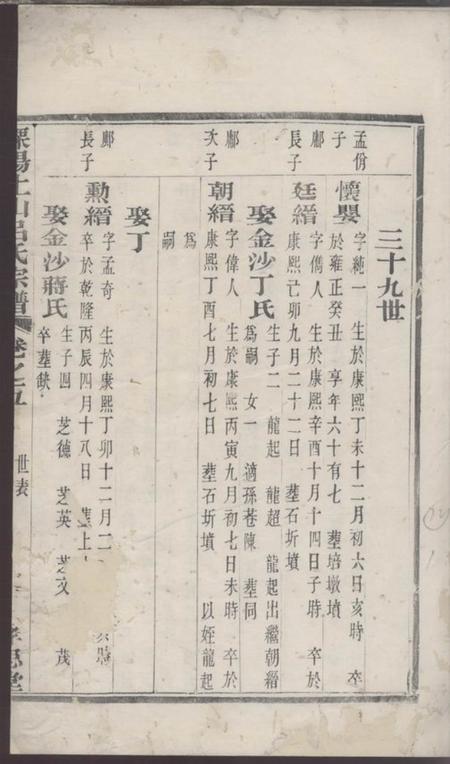 三十九世
孟份子
懷嬰 字純一 生於康熙丁未十二月初六日亥時 卒
於雍正癸丑 享年六十有七 葬培墩墳
鄺長子
廷縉 字儁人 生於康熙辛酉十月十四日子時 卒於
康熙己卯九月二十二日 葬石圻墳
娶金沙丁氏 生子二 龍起 龍超 龍起出繼朝縉
為嗣 女一 適孫巷陳 葬同
鄺次子
朝縉 字偉人 生於康熙丙寅九月初七日未時 卒於
康熙丁酉七月初七日 葬石圻墳 以姪龍起
為
嗣
娶丁
鄺長子
勳縉 字孟奇 生於康熙丁卯十二月二
卒於乾隆丙辰四月十八日 葬上
娶金沙蔣氏 生子四 芝德 芝英 芝文 茂
卒葬缺
溧陽上山呂氏宗譜 卷之五 世表